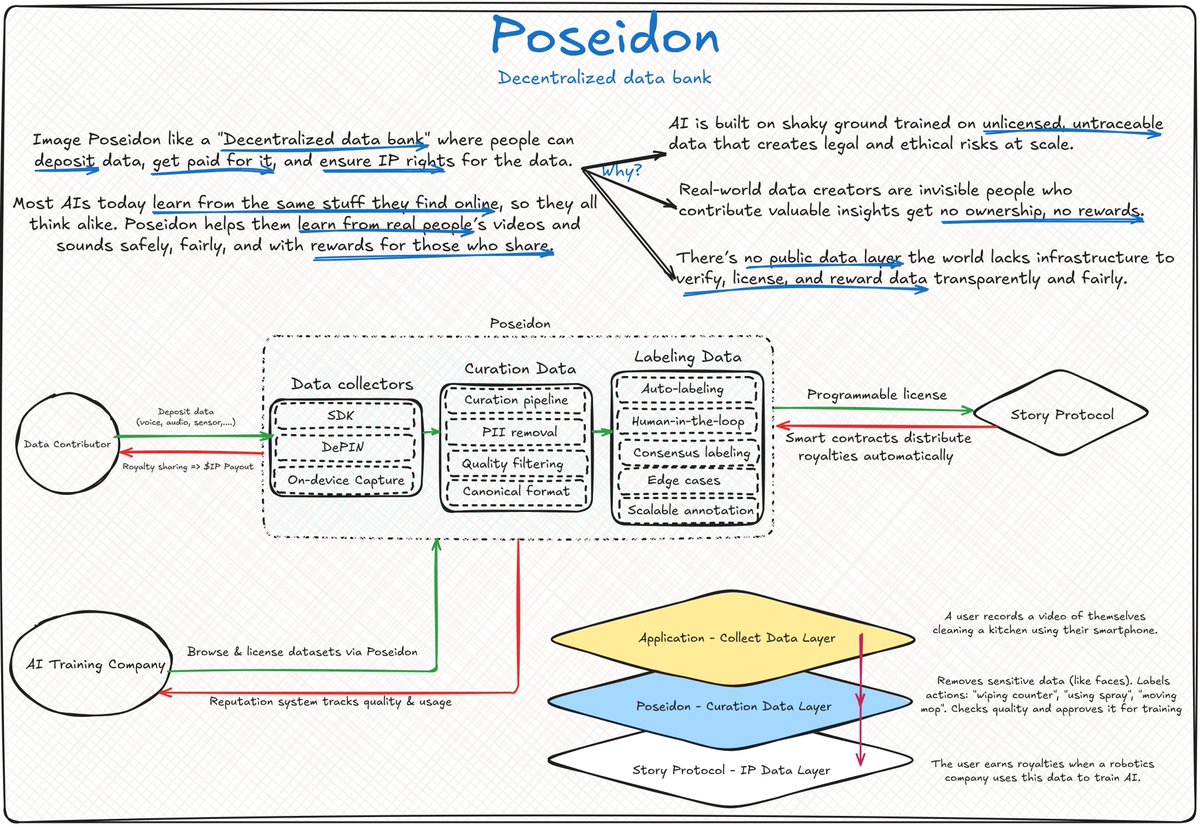 Poseidon
Decentralized data bank
Image Poseidon like a "Decentralized data bank" where people can
deposit data, get paid for it, and ensure IP rights for the data.
Most AIs today learn from the same stuff they find online, so they all
think alike. Poseidon helps them learn from real people's videos and
sounds safely, fairly, and with rewards for those who share.
Why?
AI is built on shaky ground trained on unlicensed, untraceable
data that creates legal and ethical risks at scale.
Real-world data creators are invisible people who
contribute valuable insights get no ownership, no rewards.
There's no public data layer the world lacks infrastructure to
verify, license, and reward data transparently and fairly.
Poseidon
Data Contributor
Deposit data
(voice, audio, sensor,....)
Royalty sharing => $IP Payout
Data collectors
SDK
DePIN
On-device Capture
Curation Data
Curation pipeline
PII removal
Quality filtering
Canonical format
Labeling Data
Auto-labeling
Human-in-the-loop
Consensus labeling
Edge cases
Scalable annotation
Programmable license
Smart contracts distribute
royalties automatically
Story Protocol
AI Training Company
Browse & license datasets via Poseidon
Reputation system tracks quality & usage
Application - Collect Data Layer
A user records a video of themselves
cleaning a kitchen using their smartphone.
Poseidon - Curation Data Layer
Removes sensitive data (like faces). Labels
actions: "wiping counter", "using spray", "moving
mop". Checks quality and approves it for training
Story Protocol - IP Data Layer
The user earns royalties when a robotics
company uses this data to train AI.